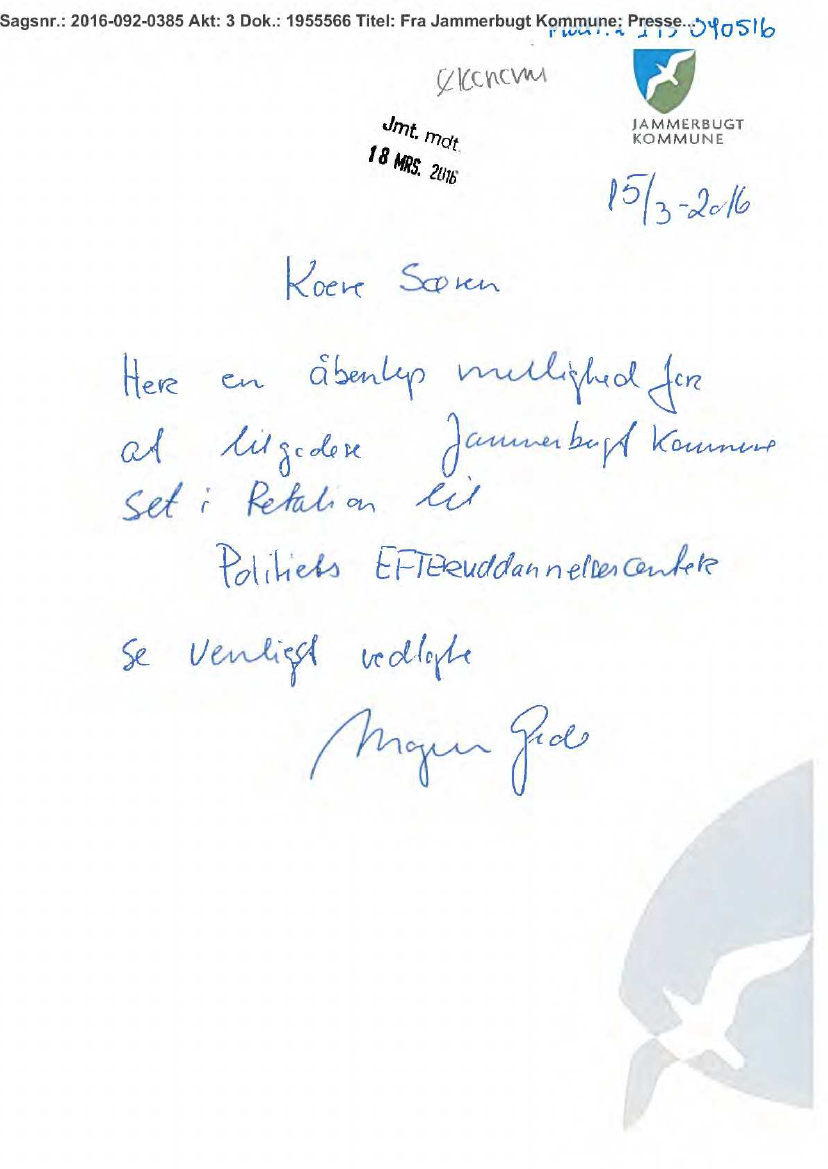 Sagsnr.: 2016-092-0385 Akt: 3 Dok.: 1955566 Titel: Fra Jammerbugt Kommune: Presse...
090516
Økonomi
JAMMERBUGT
KOMMUNE
Jmt. mdt.
18 MRS. 2016
15/3-2016
Kære Søren
Her en åbenlys mulighed for
at tilgodese Jammerbugt Kommune
set i Relation til
Politiets EFTERuddannelsescenter
Se venligst vedlagte
Mogens Gade